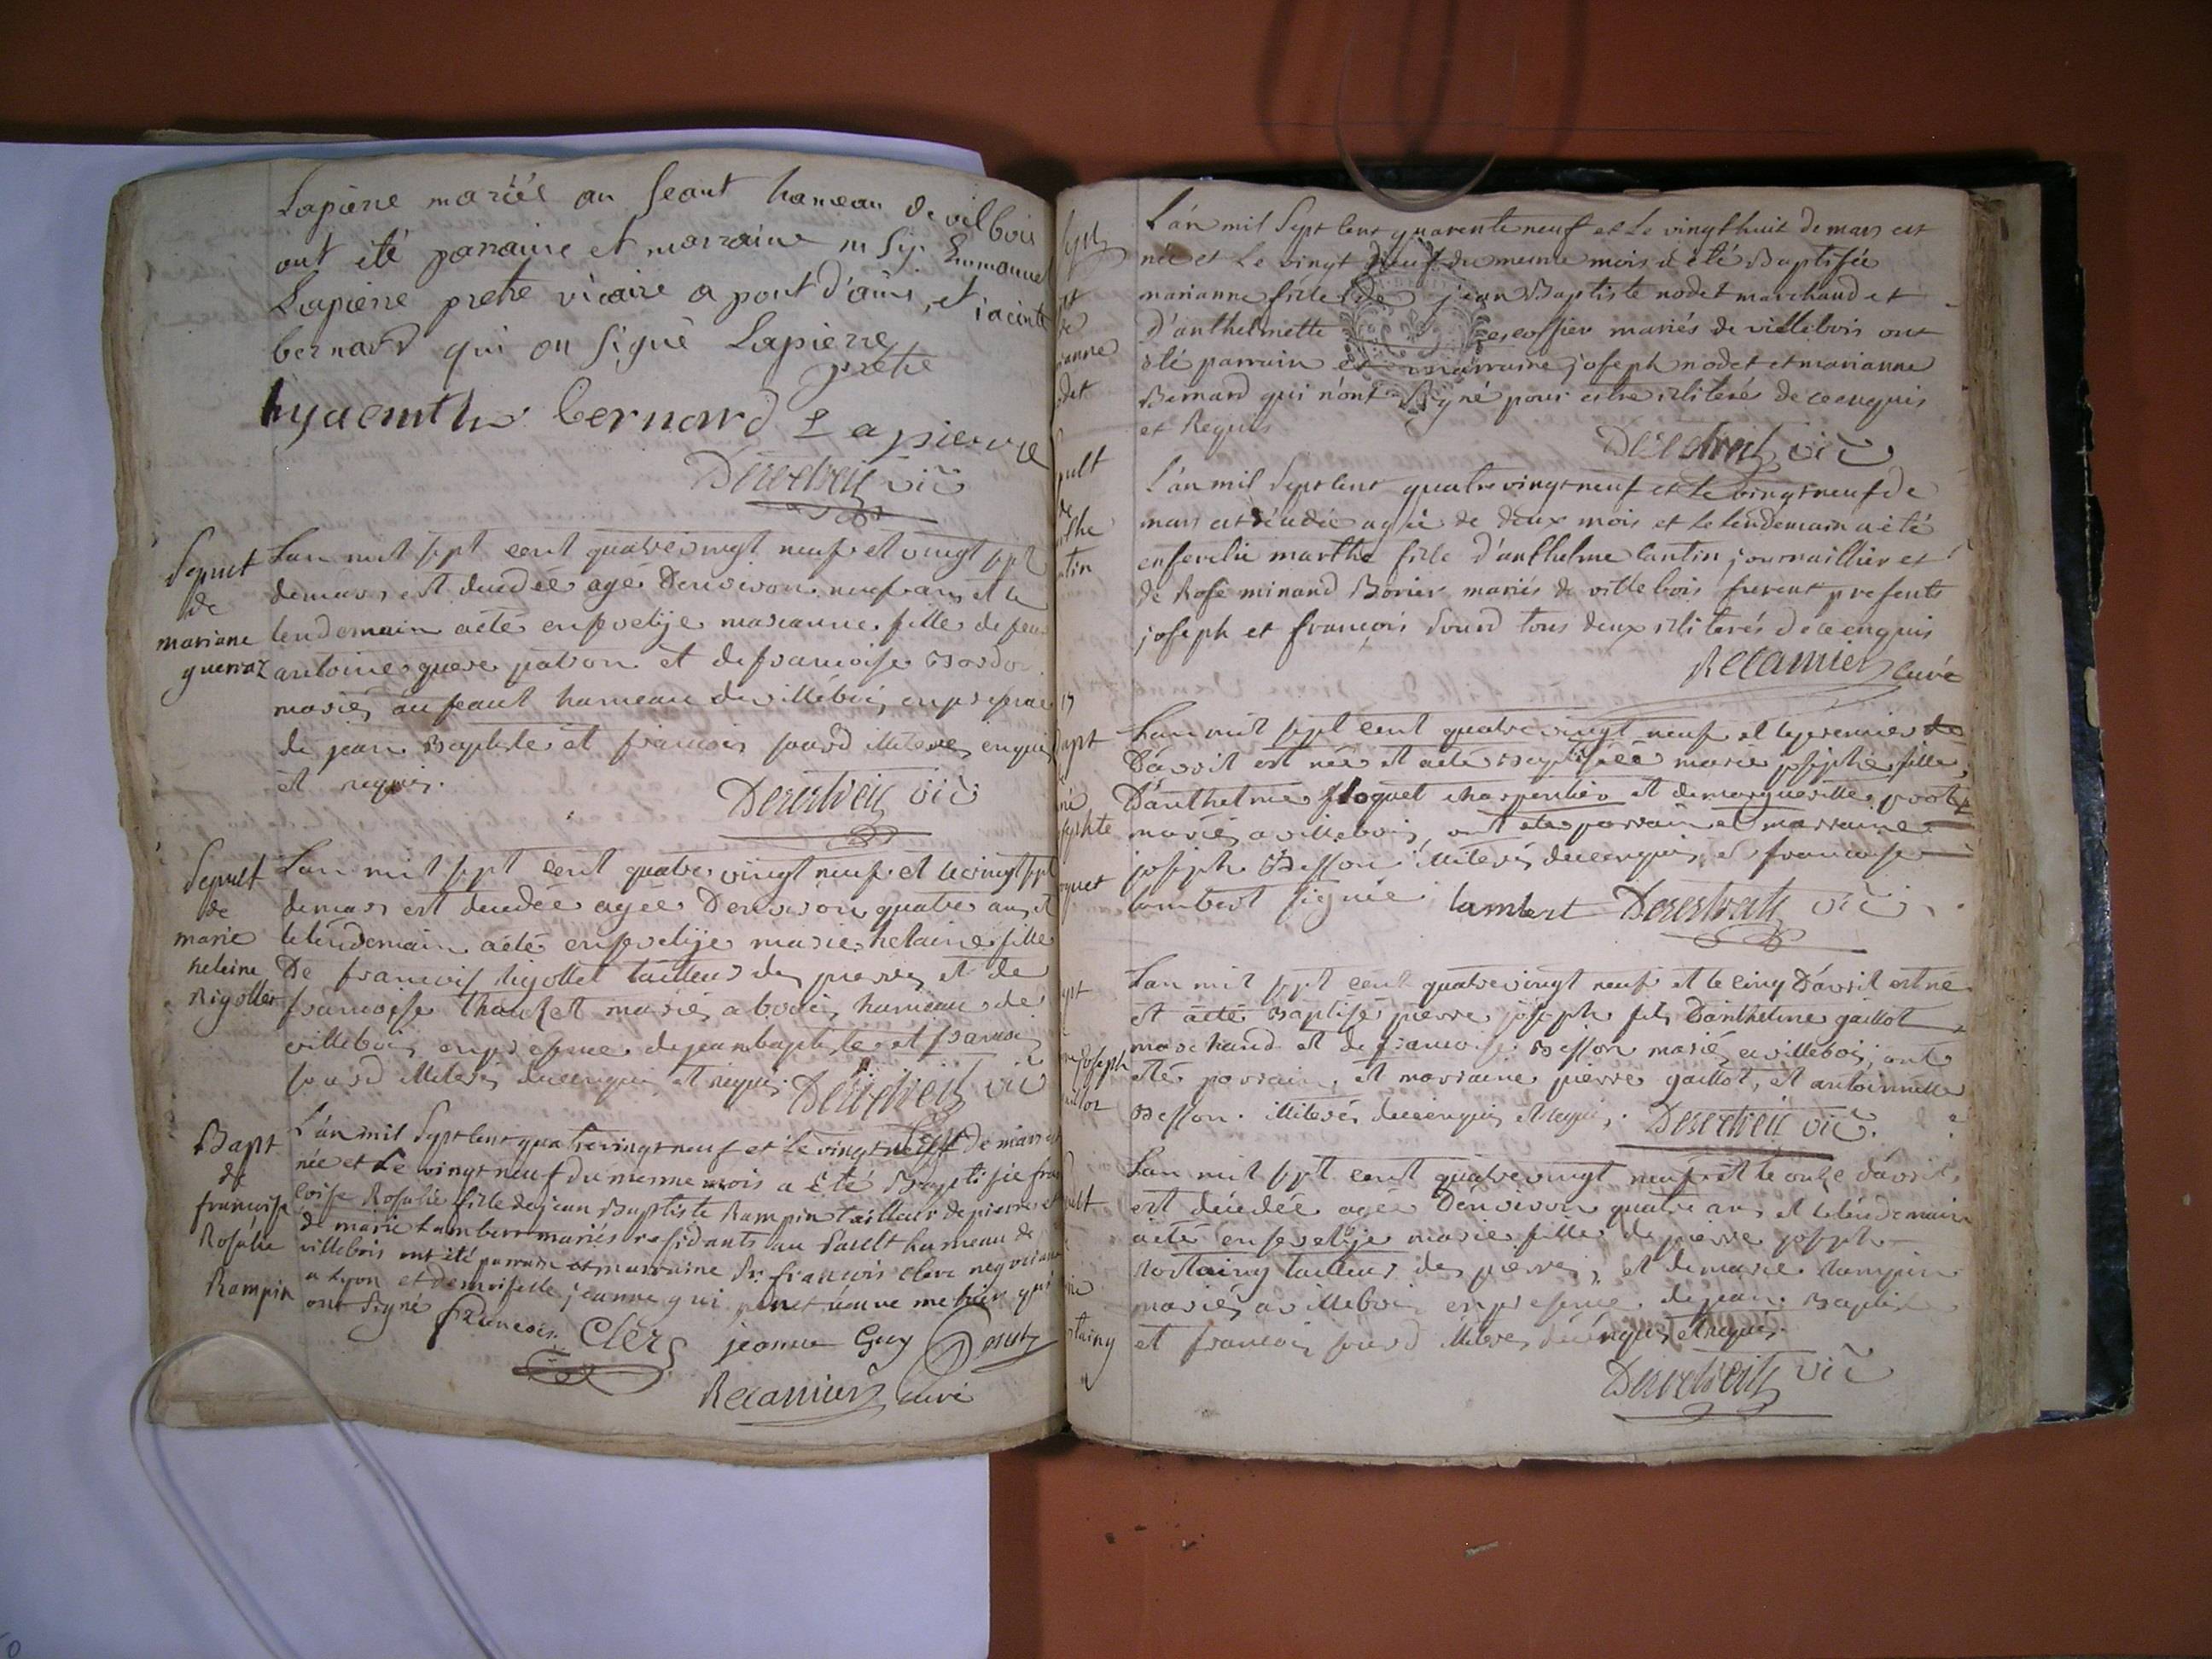 Lapierre mariés au Seaut hameau de vilbois
ont été parraine et marraine m Sr. Emmanuel
Lapierre pretre vicaire a pont d'ains, et iacinte
bernard qui on signé Lapierre
pretre
hyacinthe bernard Lapierre
vic
Sepult
de
mariane
guerraz
Lan mil sept cent quatrevingt neuf et vingt sept
demars est decedée agé Denviron neuf ans et le
lendemain aété ensevelije marianne fille de feu
antoine guere patron et defrancoise
mariés au seaut hameau de villebois en presence
de jean Baptiste et francois sourd illiteres enquis
et requis.
vic
Sepult
de
marie
heleine
Rigollet
Lan mil sept cent quatre vingt neuf et levingt sept
demars est decedée agée Denviron quatre ans et
lelendemain aété ensevelije marie helaine fille
De francois rigollet tailleur de pierres et de
francoise mariés a bodis hameau de
villebois en presence dejeanbaptiste et francois
sourd illiterés decenquis et requis. vic
Bapt
de
francoise
Rosalie
Rampin
L'an mil Sept Cent quatrevingt neuf et le vingt de mars est
née et Le vingt neuf du meme mois a été Baptisée fran
coise Rosalie fille de jean Baptiste Rampin tailleur de pierre et
de marie Lambert mariés residants au Sault hameau de
villebois ont été parrain et marraine Sr. francois Clerc negociant
a Lyon et demoiselle jeanne gui veuve qui
ont Signé francois Clerc jeanne Guy
Recamier curé
L'an mil Sept Cent quarente neuf et Le vingt huit de mars est
née et Le vingt neuf du meme mois a été Baptisée
marianne fille de jean Baptiste nodet marchand et
d'anthelmette escoffier mariés de villebois ont
été parrain et marraine joseph nodet et marianne
Bernard qui n'ont Signé pour estre illiteré de ce enquis
et Requis
vic
L'an mil Sept Cent quatre vingt neuf et Le vingt neuf de
mars est décédée agée de deux mois et le lendemain a été
ensevelie marthe fille d'anthelme Cantin journaillier et
de Rose minand Borier mariés de villebois furent presents
joseph et françois Sourd tous deux illiterés de ce enquis
Recamier Curé
Lan mil sept cent quatre vingt neuf et le premier de
D'avril est née et aété Baptisée marie josephte fille
D'anthelme floquet charpentier et demargueritte
mariés a villebois, ont ete parrain et marraine
joseph Besson illiterés decenquis, et francoise
lambert signée lambert vic
Lan mil sept cent quatrevingt neuf et le cinq D'avril est né
et aété Baptisé pierre joseph fils D'anthelme gaillot
marchand et de francoise Besson mariés a villebois, ont
etés parrain, et marraine pierre gaillot, et antoinnette
Besson. illiterés decenquis et requis. vic.
Lan mil sept cent quatrevingt neuf et le onze d'avril,
est décédée agée D'environ quatre ans et lelendemain
aété ensevelije marie fille de pierre joseph
Rostaing tailleur de pierres, et demarie Rampin
mariés a villebois en presence dejean Baptiste
et francois sourd illiteres décenquis et requis.
vic